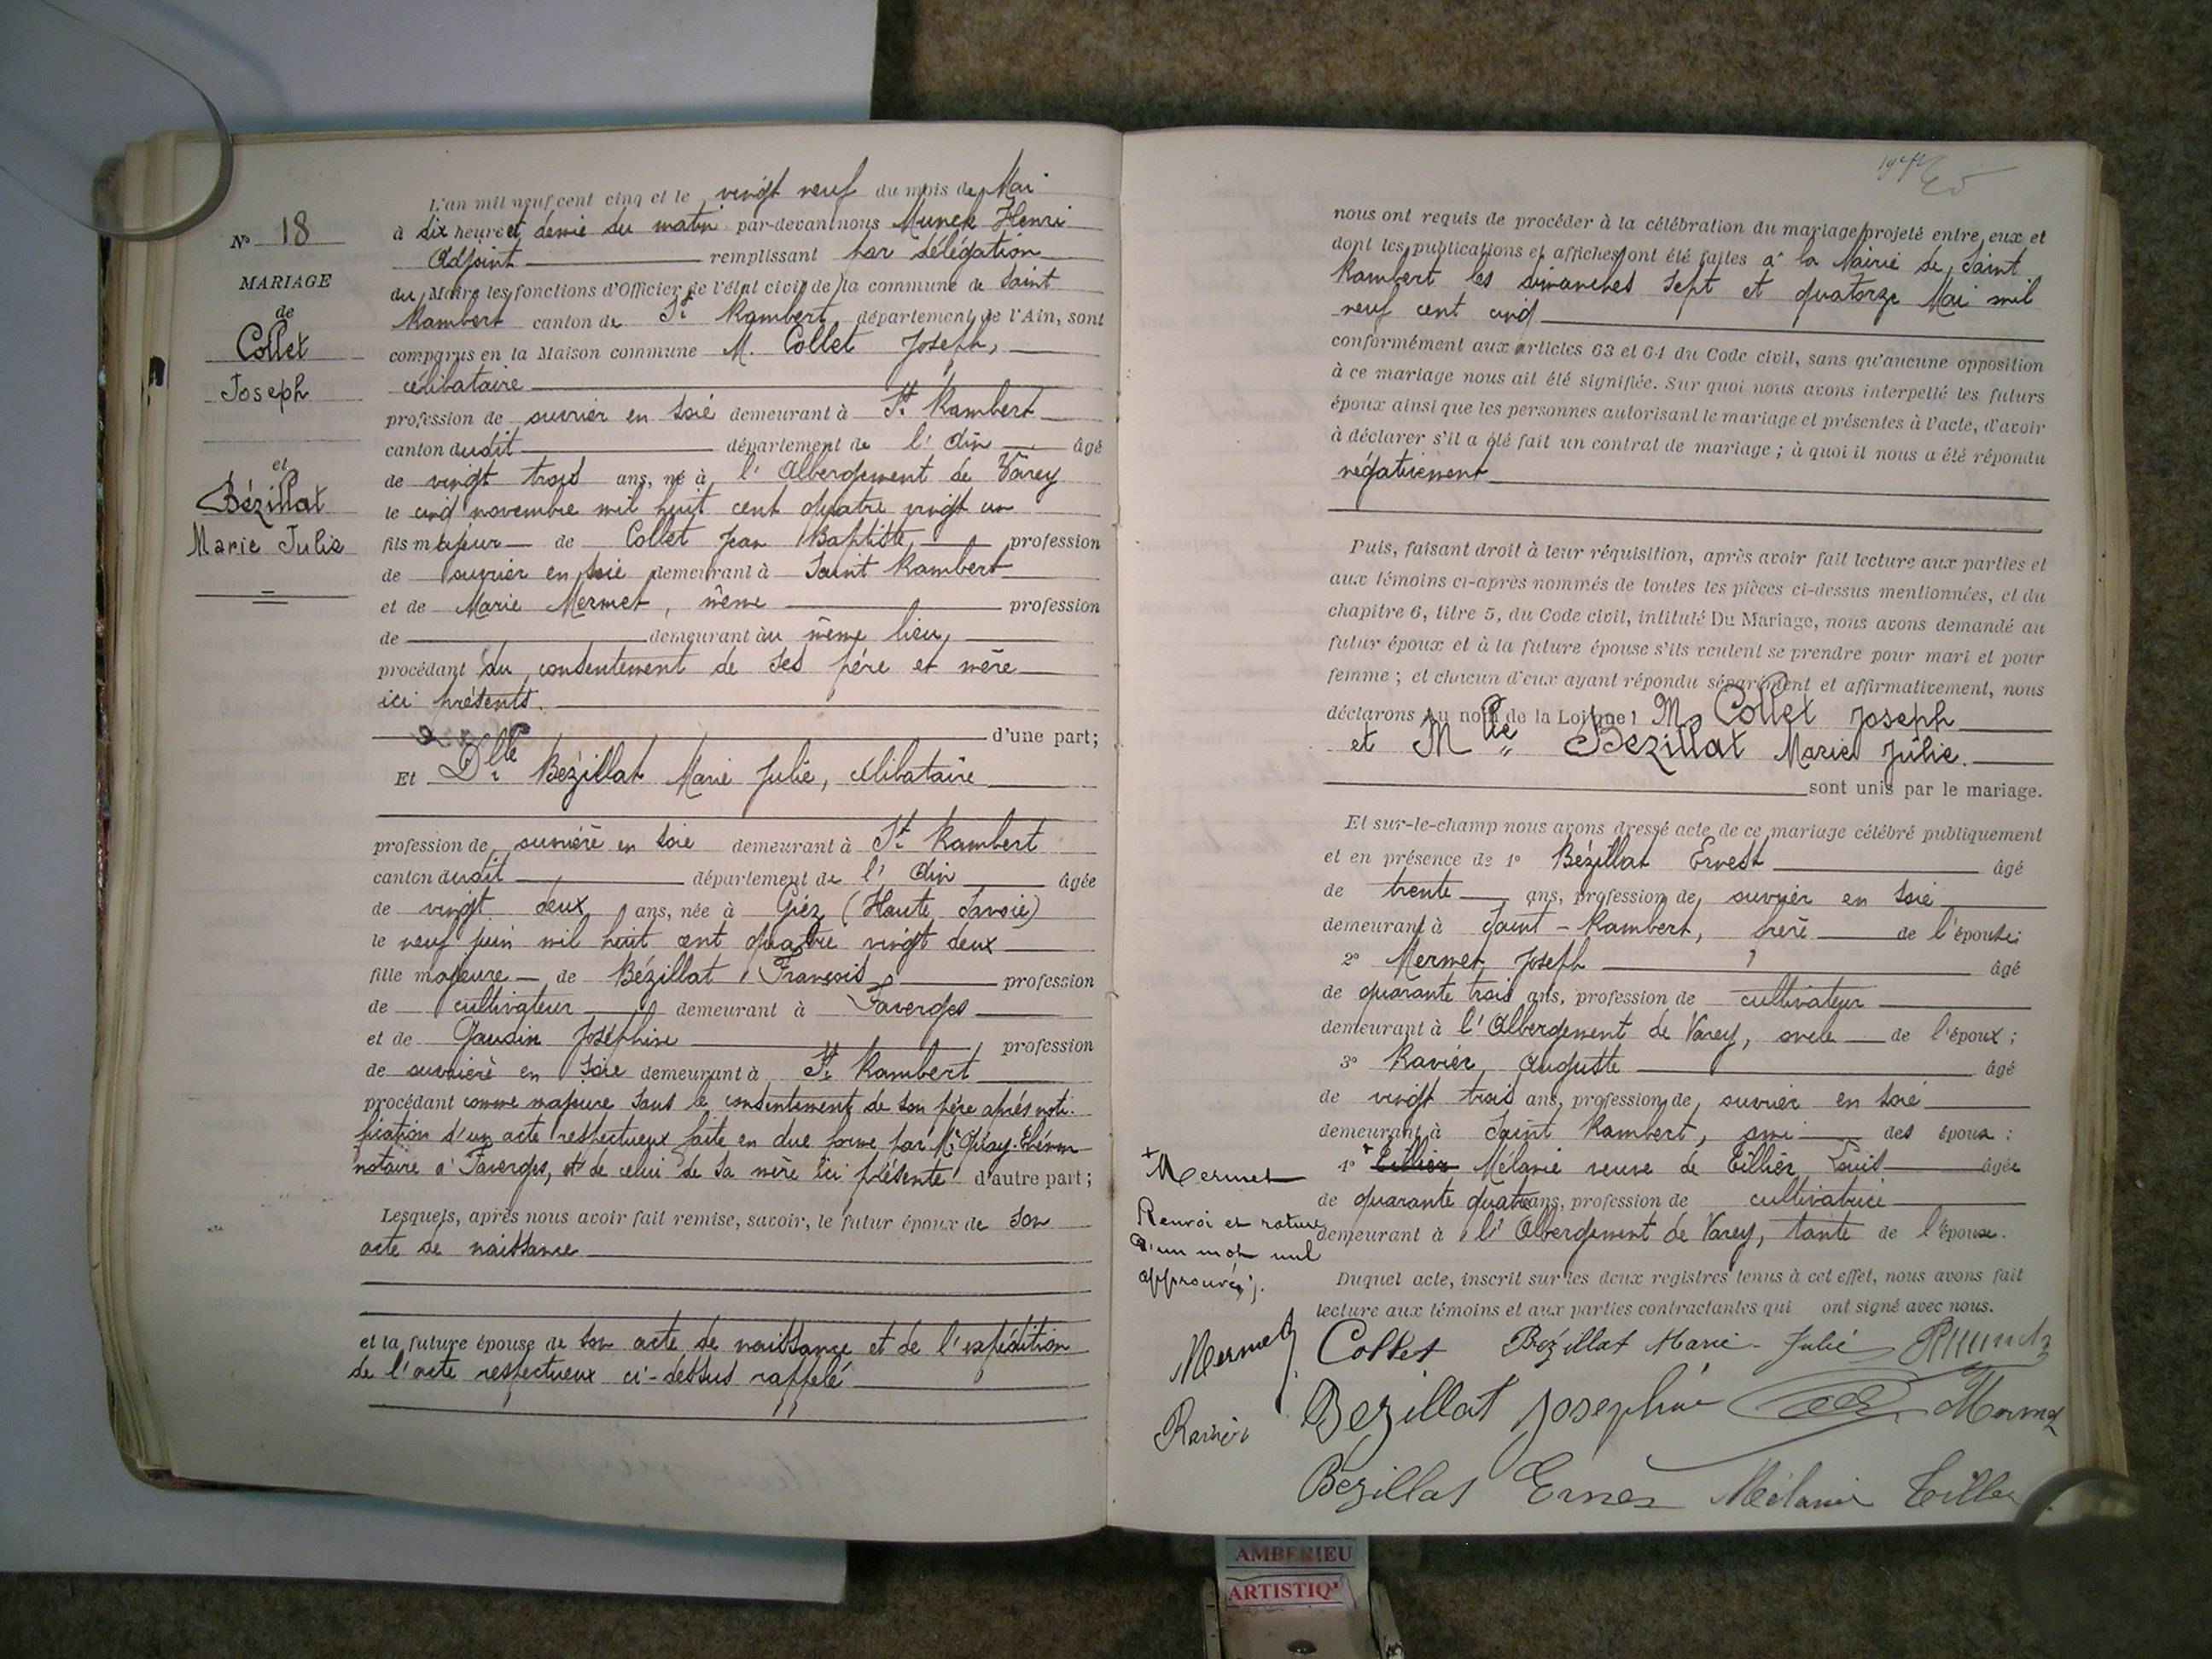 N° 18
MARIAGE
de
Collet
Joseph
et
Bézillat
Marie Julie
L'an mil neuf cent cinq et le vingt neuf du mois de Mai
à dix heure et demie du matin par-devant nous Munck Henri
Adjoint remplissant par délégation
du Maire les fonctions d'Officier de l'état civil de la commune de Saint
Rambert canton de St Rambert, département de l'Ain, sont
comparus en la Maison commune M. Collet Joseph,
célibataire
profession de ouvrier en soie demeurant à St Rambert
canton dudit département de l'Ain âgé
de vingt trois ans, né à l'Albergement de Varey
le cinq novembre mil huit cent quatre vingt un
fils majeur de Collet Jean Baptiste, profession
de ouvrier en soie demeurant à Saint Rambert
et de Marie Mermet, même profession
de demeurant au même lieu,
procédant du consentement de ses père et mère
ici présents.
d'une part;
Et Dlle Bézillat Marie Julie, célibataire
profession de ouvrière en soie demeurant à St Rambert
canton dudit département de l'Ain âgée
de vingt deux ans, née à Giez (Haute Savoie)
le neuf juin mil huit cent quatre vingt deux
fille majeure de Bézillat François profession
de cultivateur demeurant à Faverges
et de Gaudin Joséphine profession
de ouvrière en soie demeurant à St Rambert
procédant comme majeure sans le consentement de son père après noti-
fication d'un acte respectueux faite en due forme par Me
notaire à Faverges, et de celui de sa mère ici présente d'autre part;
Lesquels, après nous avoir fait remise, savoir, le futur époux de son
acte de naissance
et la future épouse de son acte de naissance et de l'expédition
de l'acte respectueux ci-dessus rappelé
nous ont requis de procéder à la célébration du mariage projeté entre eux et
dont les publications et affiches ont été faites à la Mairie de Saint
Rambert les dimanches sept et quatorze Mai mil
neuf cent cinq
conformément aux articles 63 et 64 du Code civil, sans qu'aucune opposition
à ce mariage nous ait été signifiée. Sur quoi nous avons interpellé les futurs
époux ainsi que les personnes autorisant le mariage et présentes à l'acte, d'avoir
à déclarer s'il a été fait un contrat de mariage; à quoi il nous a été répondu
négativement
Puis, faisant droit à leur réquisition, après avoir fait lecture aux parties et
aux témoins ci-après nommés de toutes les pièces ci-dessus mentionnées, et du
chapitre 6, titre 5, du Code civil, intitulé Du Mariage, nous avons demandé au
futur époux et à la future épouse s'ils veulent se prendre pour mari et pour
femme; et chacun d'eux ayant répondu séparément et affirmativement, nous
déclarons au nom de la Loi que M. Collet Joseph
et Mlle Bézillat Marie Julie.
sont unis par le mariage.
Et sur-le-champ nous avons dressé acte de ce mariage célébré publiquement
et en présence de 1° Bézillat Ernest âgé
de trente ans, profession de ouvrier en soie
demeurant à Saint-Rambert, frère de l'épouse;
2° Mermet Joseph âgé
de quarante trois ans, profession de cultivateur
demeurant à l'Albergement de Varey, oncle de l'époux;
3° Ravier Auguste âgé
de vingt trois ans, profession de ouvrier en soie
demeurant à Saint Rambert, ami des époux:
4° + Tillier Mélanie veuve de Tillier Louis âgée
de quarante quatre ans, profession de cultivatrice
demeurant à l'Albergement de Varey, tante de l'épouse.
Duquel acte, inscrit sur les deux registres tenus à cet effet, nous avons fait
lecture aux témoins et aux parties contractantes qui ont signé avec nous.
+ Mermet
Renvoi et rature
d'un mot nul
approuvés
Mermet
Ravier
Collet Bézillat Marie-Julie
Bezillat Joséphine Mermet
Bézillat Ernest Mélanie Tillier
AMBERIEU
ARTISTIQ'